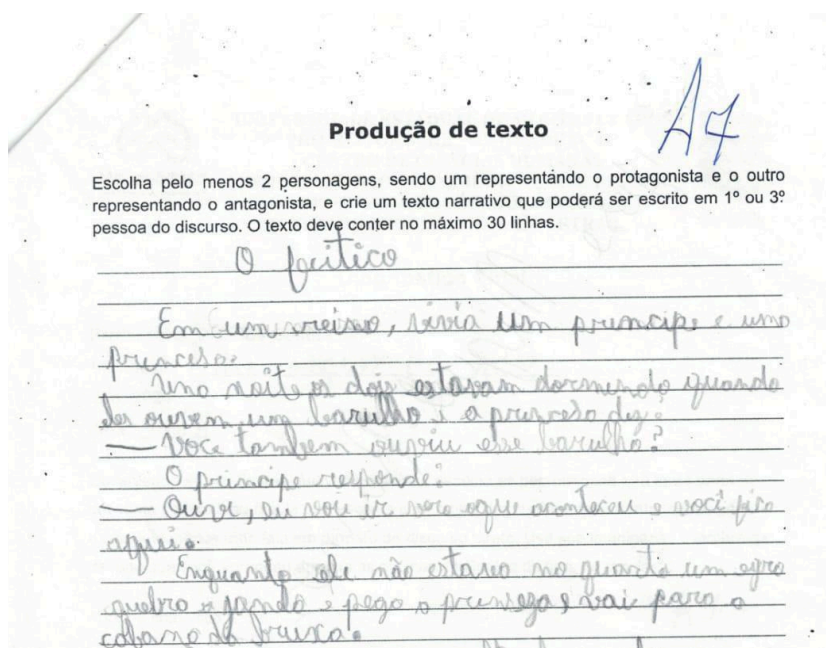 A7
Produção de texto
Escolha pelo menos 2 personagens, sendo um representando o protagonista e o outro
representando o antagonista, e crie um texto narrativo que poderá ser escrito em 1º ou 3º
pessoa do discurso. O texto deve conter no máximo 30 linhas.
O feitiço
Em um reino, vivia um principe e uma
princesa.
Uma noite os dois estavam dormindo quando
eles ouvem um barulho e a princesa diz:
— Você tambem ouviu esse barulho?
O principe responde:
— Ouvi, eu vou ir ver oque aconteceu e você fica
aqui.
Enquanto ele não estava no quanto um ogro
quebra a janela e pega a prinsega e vai para a
cabana da bruxa.